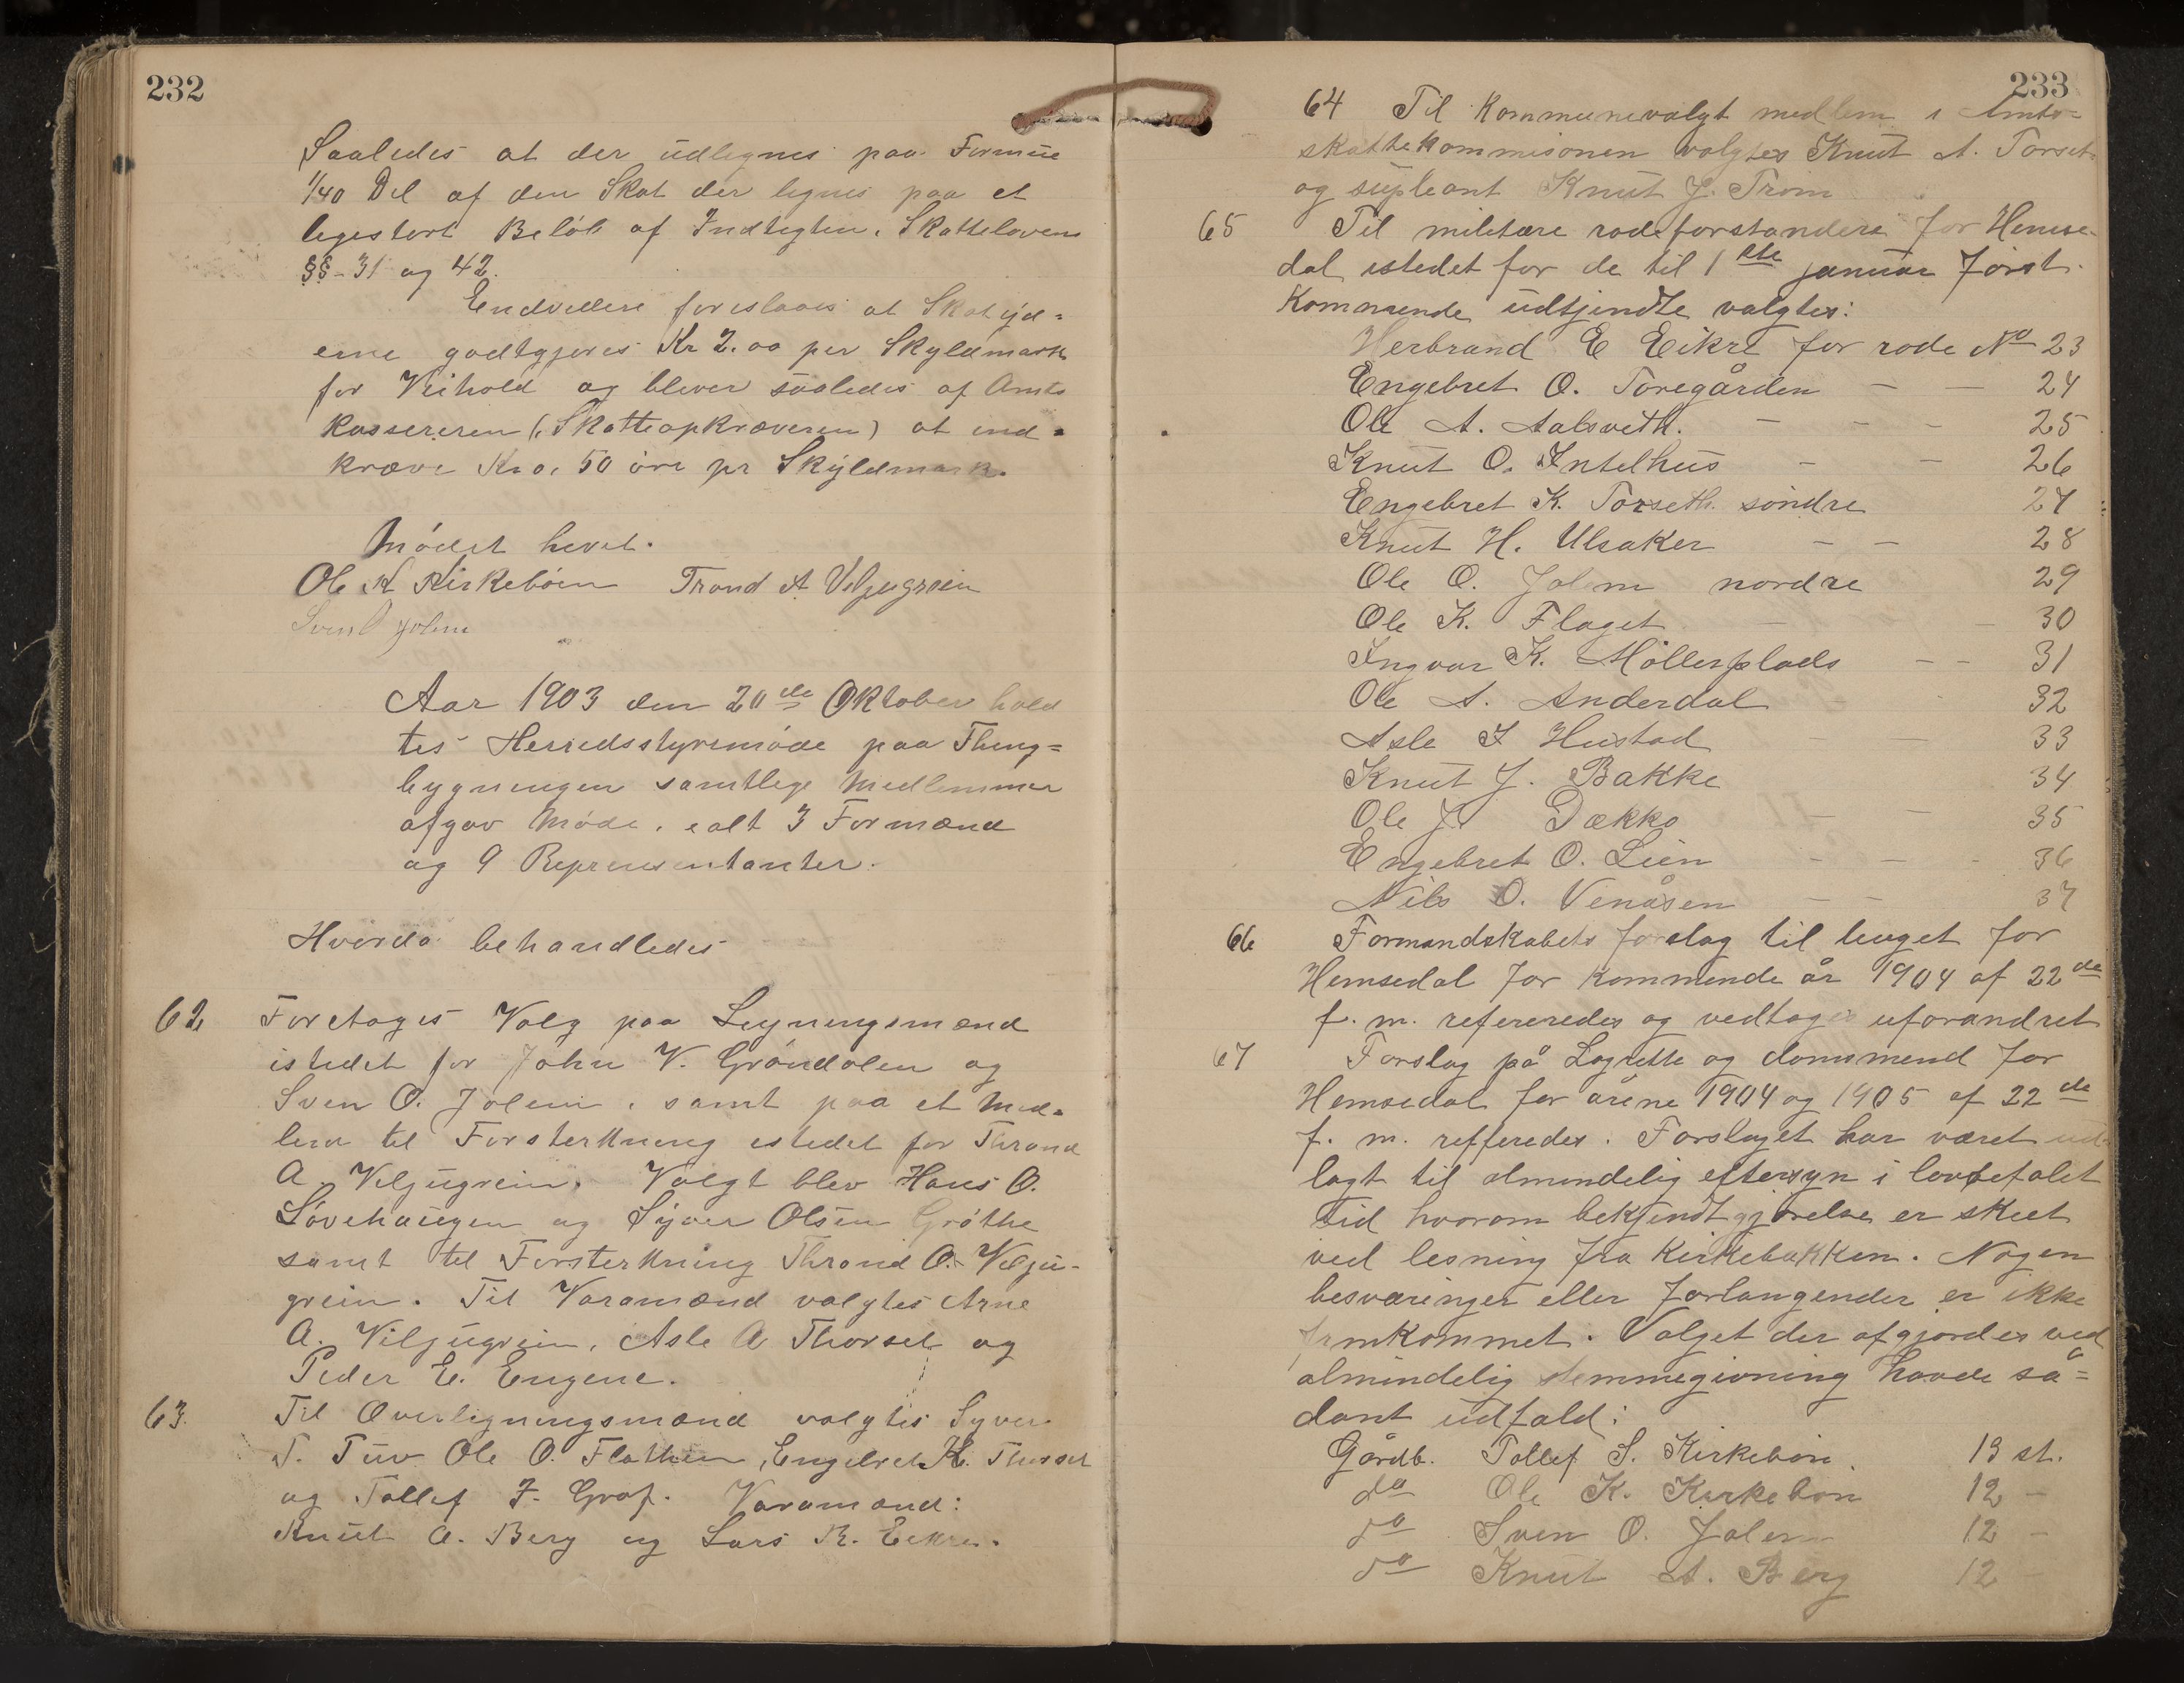 232
Saaledes at der udlignes paa Formue
1/40 Del af den Skat der lignes paa et
ligestort Beløb af Indtegten. Skattelovens
§§ - 31 og 42.
Endvidere foreslaaes at Skatyd=
erne godtgjøres Kr 2.00 per Skyldmark
for Veihold og blever saaledes af Amts
kassereren (Skatteopkræveren) at ind=
kræve Kr 0,50 øre pr Skyldmark.
Mødet hevet.
Ole K Kirkebøen Trond A Viljugrein
Sven O Jolem
Aar 1903 den 20de Oktober hold
tes Herredsstyremøde paa Thing=
bygningen samtlige Medlemmer
afgav Møde. ialt 3 Formænd
og 9 Repræsentanter.
Hvorda behandledes
62 Foretages Valg paa Ligningsmænd
istedet for John V. Grøndalen og
Sven O. Jolem, samt paa et Med=
lem til Forsterkning istedet for Thrond
A. Viljugrein. Valgt blev Hans O.
Løvehaugen og Syver Olsen Grøthe
samt til Forsterkning Thrond A. Vilju-
grein. Til Varamænd valgtes Arne
A. Viljugrein, Asle A Thorset og
Peder E. Engene.
63. Til Overligningsmænd valgtes Syver
T. Tuv Ole O. Flathen, Engebret K. Thorset
og Tollef T. Grøf. Varamænd:
Knut A. Berg og Lars R. Eekre.
233
64 Til Kommunevalgt medlem i Amts=
skattekommisonen valgtes Knut A. Torset
og supleant Knut J. Trøim
65 Til militære rodeforstandere for Hemse-
dal istedet for de til 1ste januar først
kommende udtjendte valgtes:
Herbrand E Eikre for rode No 23
Engebret O. Toregården — — 24
Ole A. Aalsveth. — — — 25
Knut O. Intelhus — — 26
Engebret K. Torseth. søndre 27
Knut H. Ulsaker — — 28
Ole O. Jolem nordre 29
Ole K. Flaget — — 30
Ingvar K. Møllerplads — — 31
Ole A. Anderdal 32
Asle I Hustad — — 33
Knut J. Bakke 34
Ole J. Dekko — — 35
Engebret O. Lien — — — 36
Nils O. Venåsen — — 37
66 Formandskabets forslag til buget for
Hemsedal for kommende år 1904 af 22de
f. m. refereredes og vedtoges uforandret
67 Forslag på Lagrette og domsmend for
Hemsedal for årene 1904 og 1905 af 22de
f. m. refferedes. Forslaget har været ud
lagt til almindelig eftersyn i lovbefalet
tid hvorom bekjendtgjørelse er skeet
ved lesning fra Kirkebakken. Nogen
besværinger eller forlangender er ikke
fremkommet. Valget der afgjordes ved
almindelig stemmegivning havde så=
dant udfald:
Gårdb. Tollef S. Kirkebøn. 13 st.
do Ole K. Kirkebøn 12 —
do Sven O. Jolem 12 —
do Knut A. Berg 12